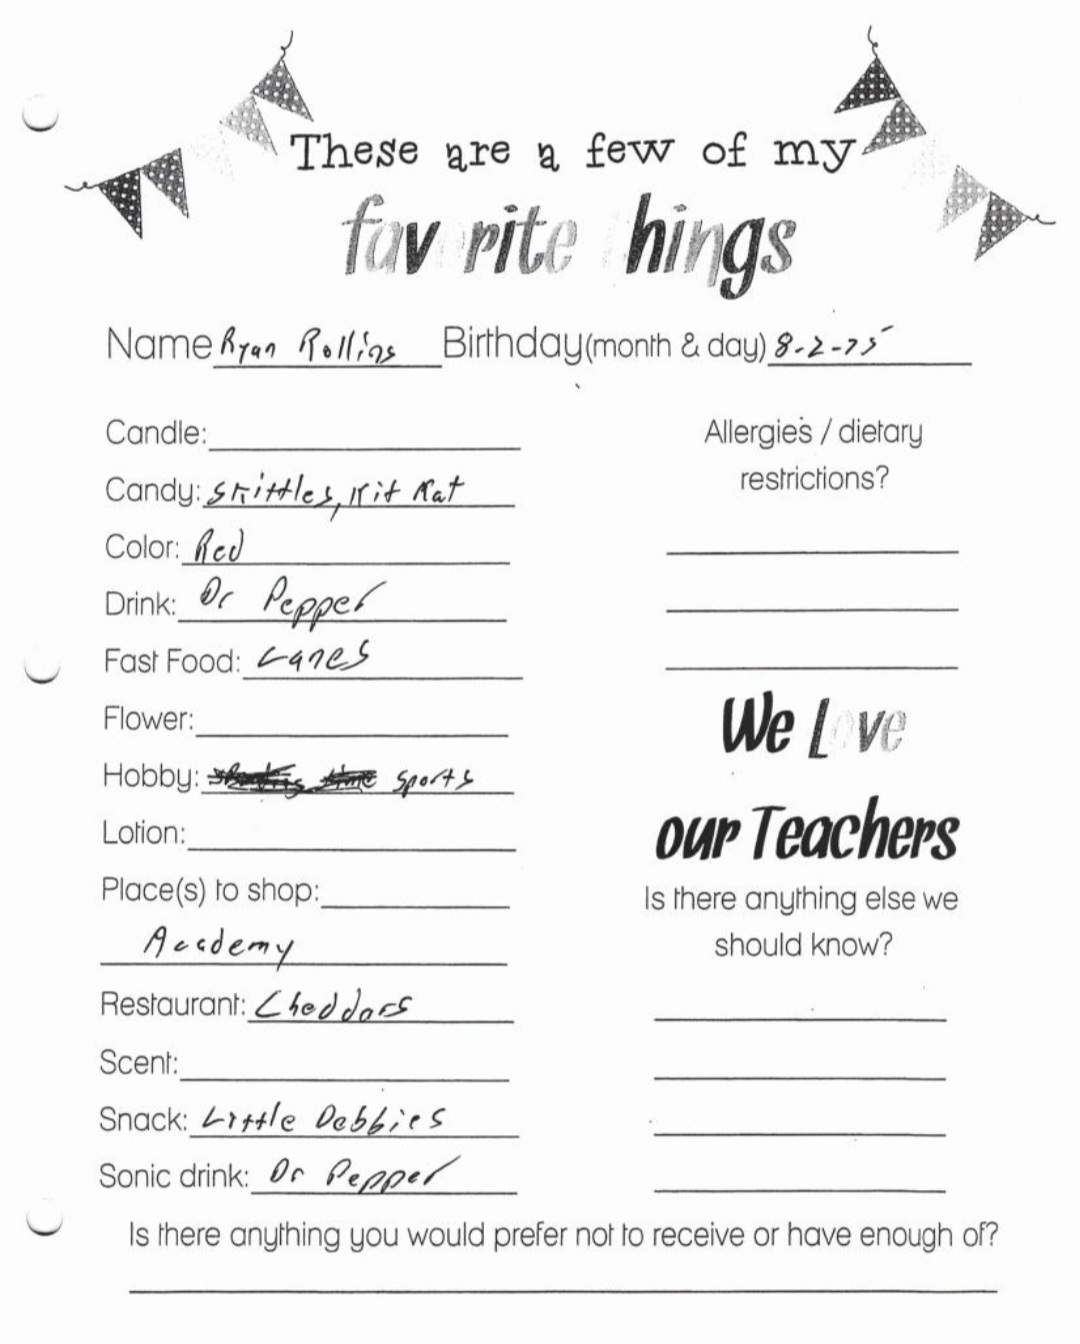 These are a few of my
fav rite hings
Name Ryan Rollins Birthday(month & day) 8-2-75
Candle:
Candy: Skittles, Kit Kat
Color: Red
Drink: Dr Pepper
Fast Food: Canes
Flower:
Hobby: sports
Lotion:
Place(s) to shop:
Academy
Restaurant: Cheddars
Scent:
Snack: Little Debbies
Sonic drink: Dr Pepper
Allergies / dietary
restrictions?
We L ve
our Teachers
Is there anything else we
should know?
Is there anything you would prefer not to receive or have enough of?